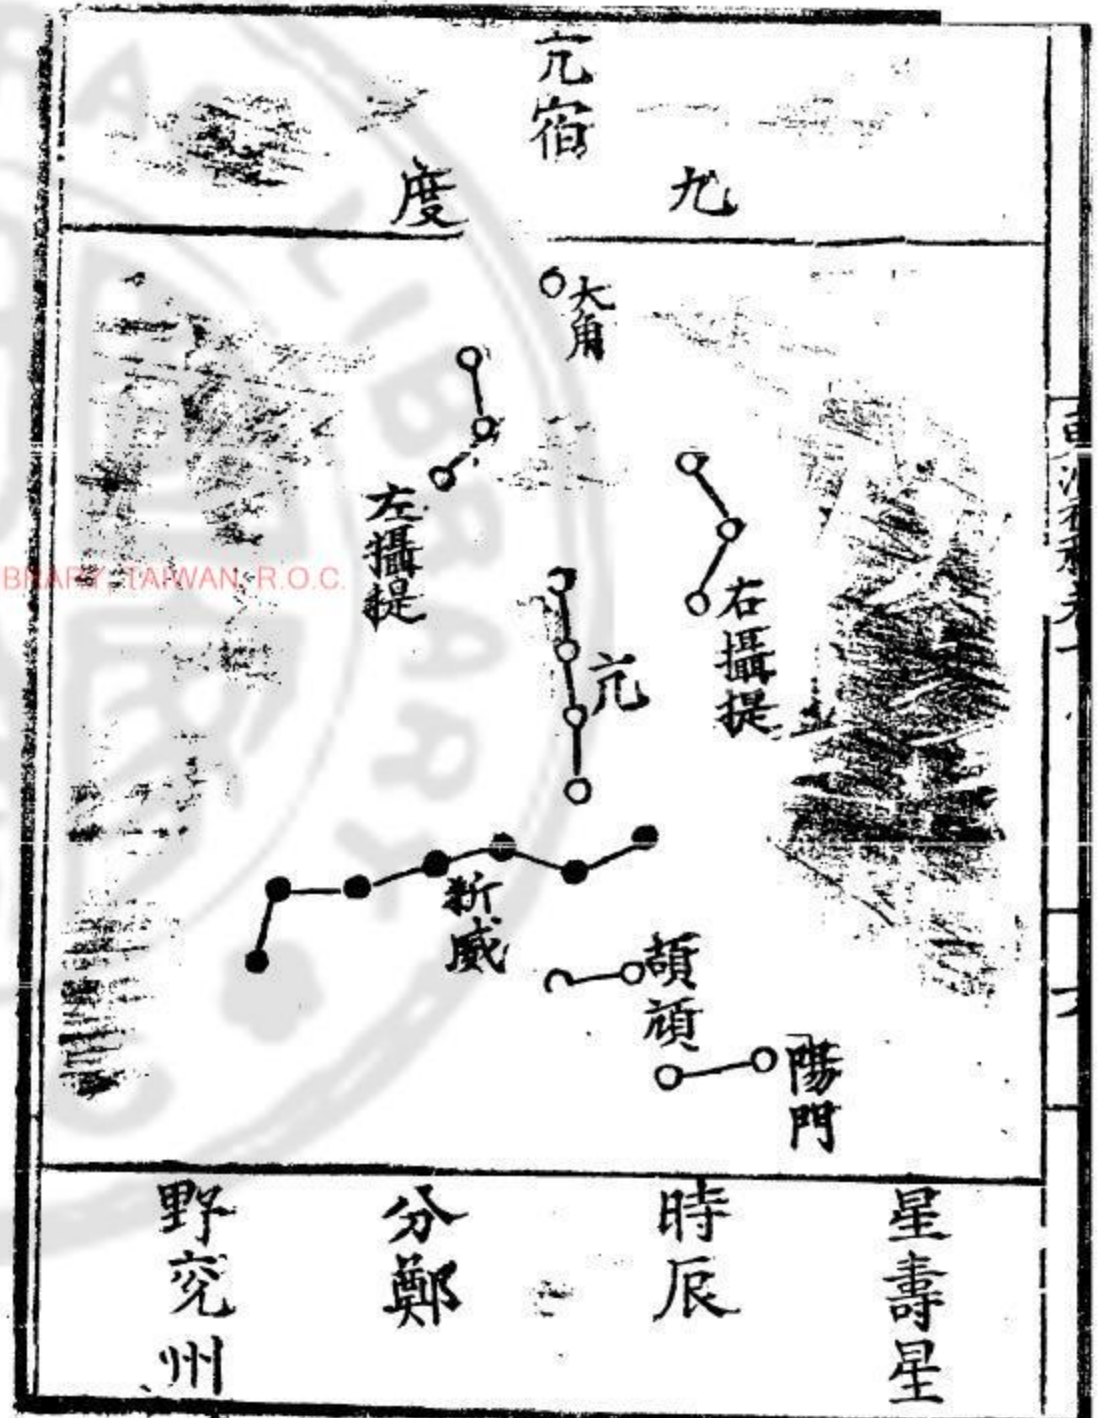 亢宿
九
度
大角
左攝提
右攝提
亢
新威
頡頏
陽門
星壽星
時辰
分鄭
野兖州
LIBRARY
BRARY, TAIWAN, R.O.C.